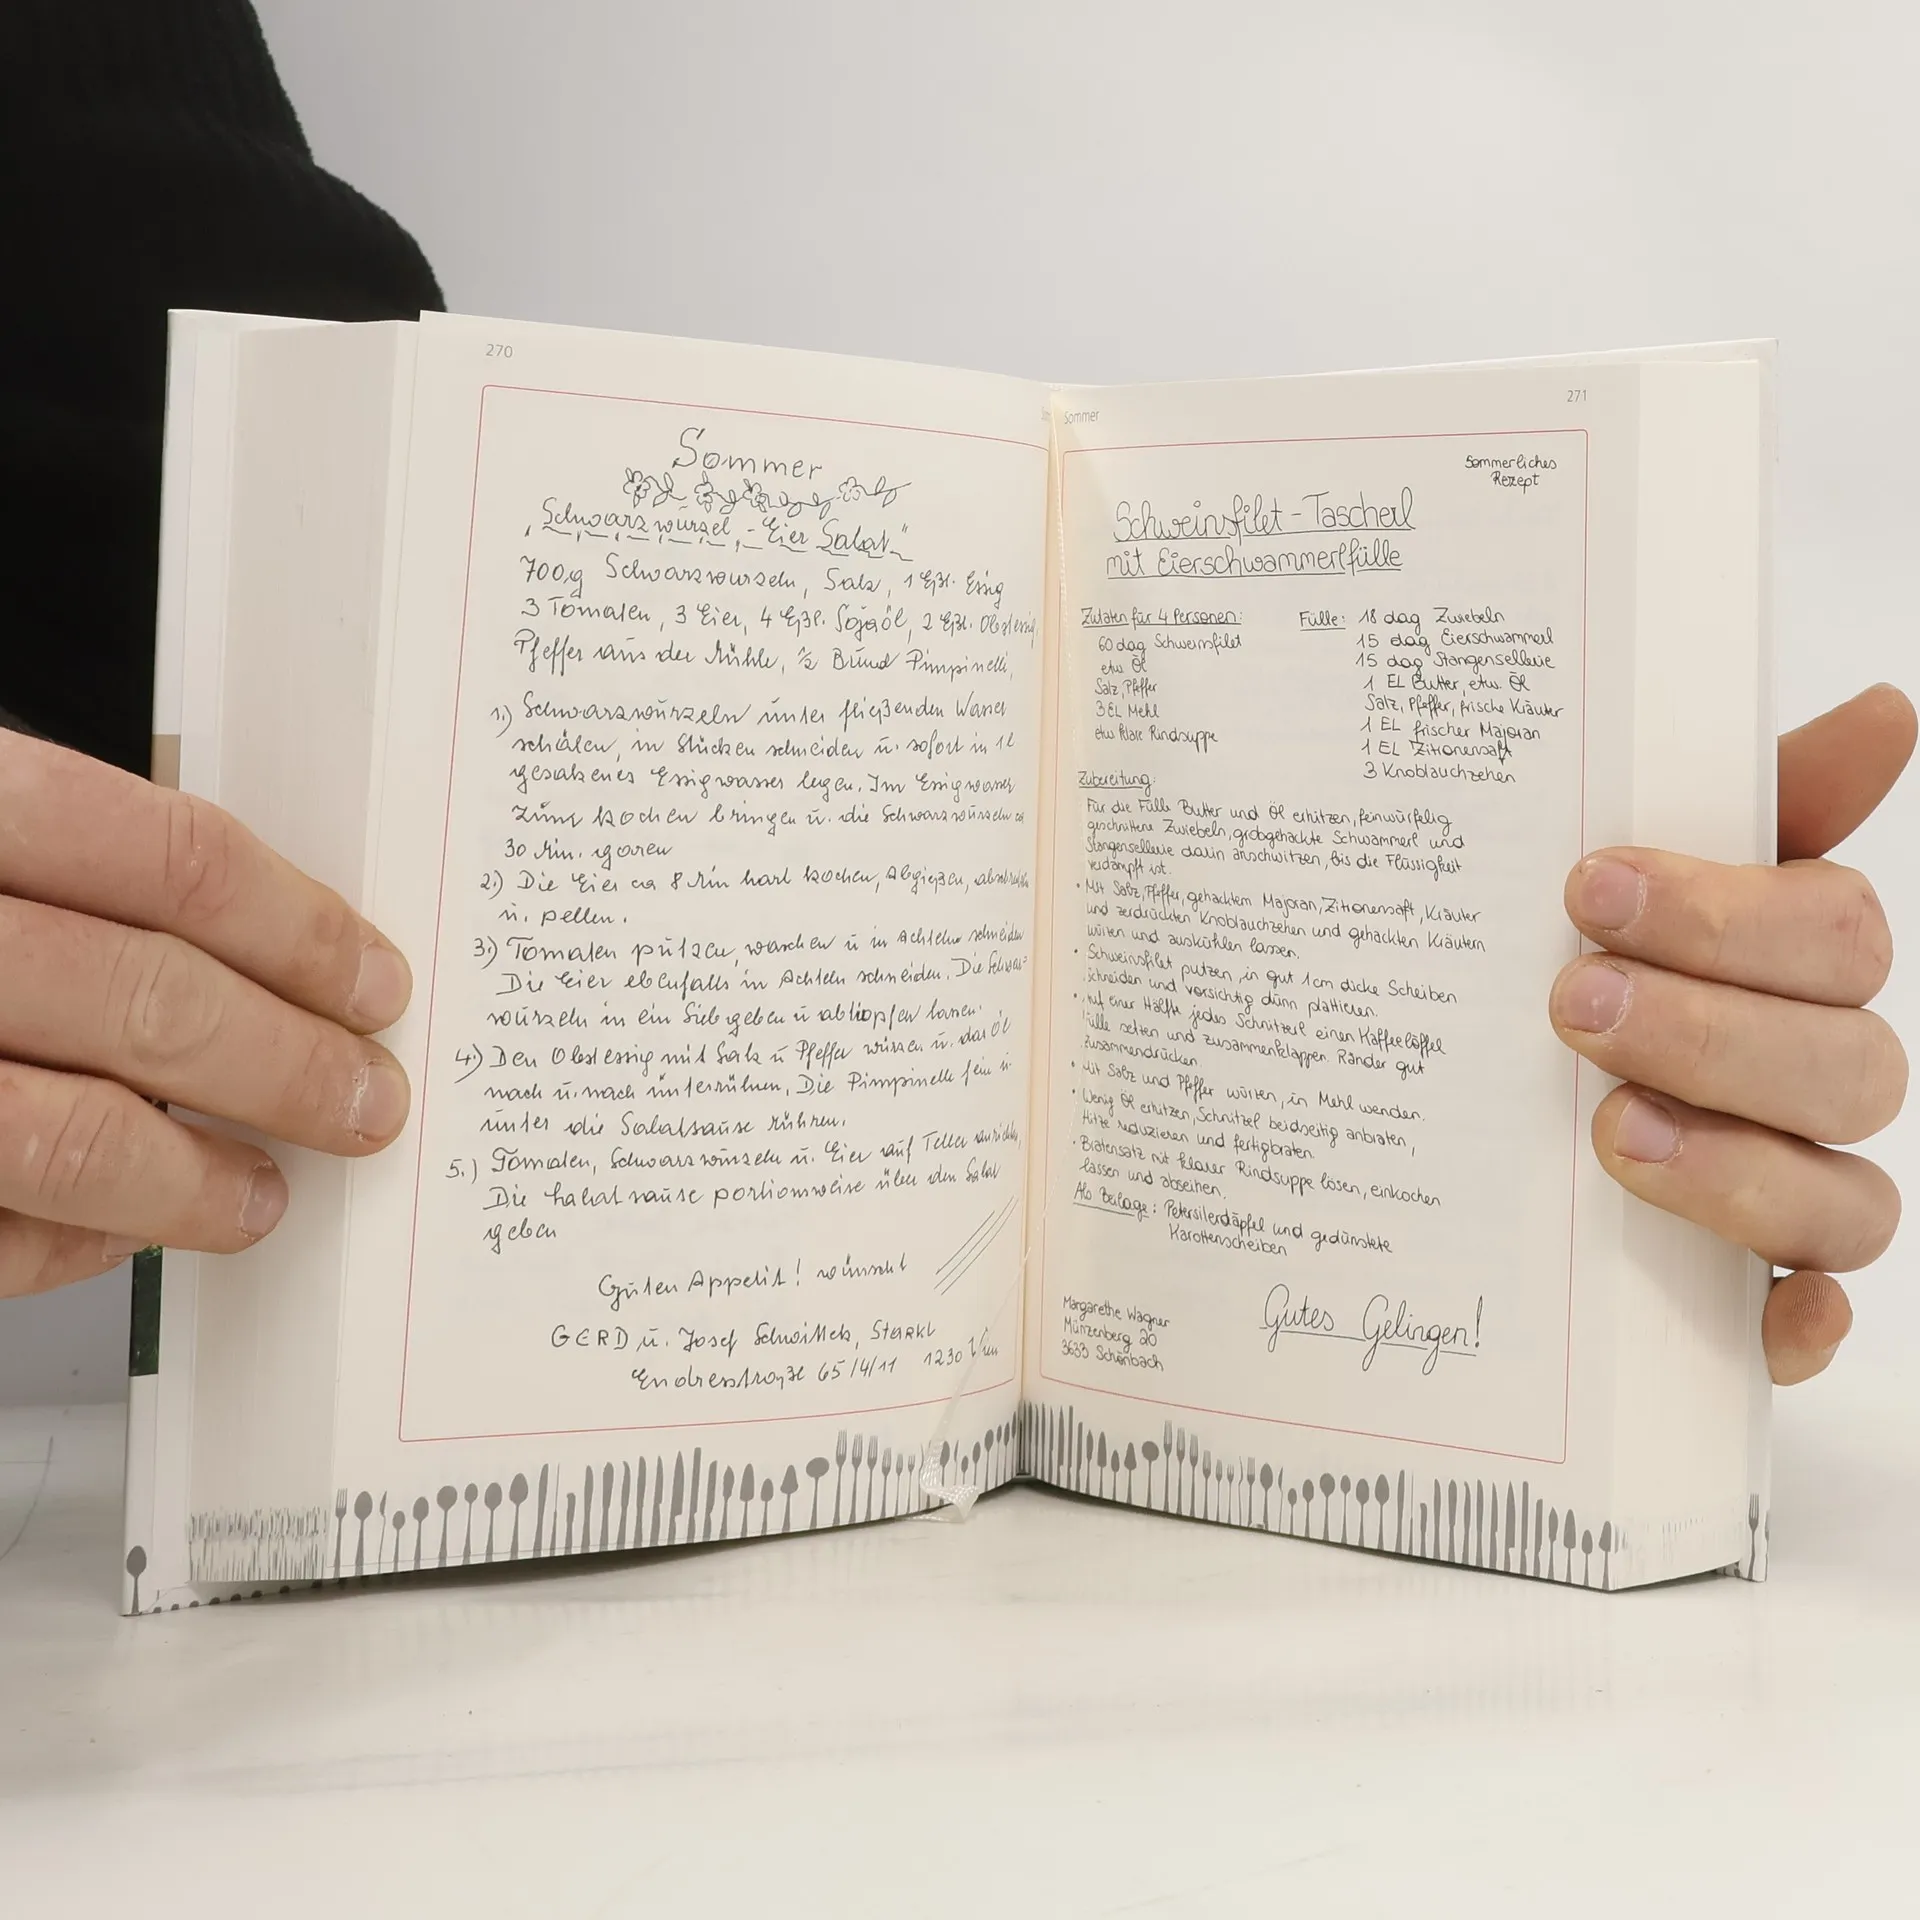 270
Sommer
„Schwarzwurzel - Eier Salat"
700g Schwarzwurzeln, Salz, 1 Eßl. Essig
3 Tomaten, 3 Eier, 4 Eßl. Sojaöl, 2 Eßl. Obstessig,
Pfeffer aus der Mühle, ½ Bund Pimpinelle,
1.) Schwarzwurzeln unter fließenden Wasser
schälen, in Stücken schneiden u. sofort in 1l
gesalzenes Essigwasser legen. Im Essigwasser
zum kochen bringen u. die Schwarzwurzeln ca
30 Min. garen
2.) Die Eier ca 8 Min hart kochen, abgießen,
u. pellen.
3.) Tomaten putzen, waschen u in Achteln schneiden
Die Eier ebenfalls in Achteln schneiden. Die Schwarz=
wurzeln in ein Sieb geben u abtropfen lassen.
4) Den Obstessig mit Salz u Pfeffer würzen u. das Öl
nach u. nach unterrühren. Die Pimpinelle fein u.
unter die Salatsauce rühren.
5.) Tomaten, Schwarzwurzeln u. Eier auf Teller anrichten,
Die Salatsauce portionsweise über den Salat
geben
Guten Appetit! wünscht
GERD u. Josef
Endresstraße 65/4/11 1230 Wien
Sommer
271
Sommerliches
Rezept
Schweinsfilet-Tascherl
mit Eierschwammerlfülle
Zutaten für 4 Personen:
60 dag Schweinsfilet
etw. Öl
Salz, Pfeffer
3 EL Mehl
etw. klare Rindsuppe
Fülle: 18 dag Zwiebeln
15 dag Eierschwammerl
15 dag Stangensellerie
1 EL Butter, etw. Öl
Salz, Pfeffer, frische Kräuter
1 EL frischer Majoran
1 EL Zitronensaft
3 Knoblauchzehen
Zubereitung:
Für die Fülle Butter und Öl erhitzen, feinwürfelig
geschnittene Zwiebeln, grobgehackte Schwammerl und
Stangensellerie darin anschwitzen, bis die Flüssigkeit
verdampft ist.
• Mit Salz, Pfeffer, gehacktem Majoran, Zitronensaft, Kräuter
und zerdrückten Knoblauchzehen und gehackten Kräutern
würzen und auskühlen lassen.
• Schweinsfilet putzen, in gut 1cm dicke Scheiben
schneiden und vorsichtig dünn plattieren.
• Auf einer Hälfte jedes Schnitzerl einen Kaffeelöffel
Fülle setzen und zusammenklappen. Ränder gut
zusammendrücken.
• Mit Salz und Pfeffer würzen, in Mehl wenden.
• Wenig Öl erhitzen, Schnitzel beidseitig anbraten,
Hitze reduzieren und fertigbraten.
• Bratensatz mit klarer Rindsuppe lösen, einkochen
lassen und abseihen.
Als Beilage: Petersilerdäpfel und gedünstete
Karottenscheiben
Gutes Gelingen!
Margarethe Wagner
Münzenberg 20
3633 Schönbach